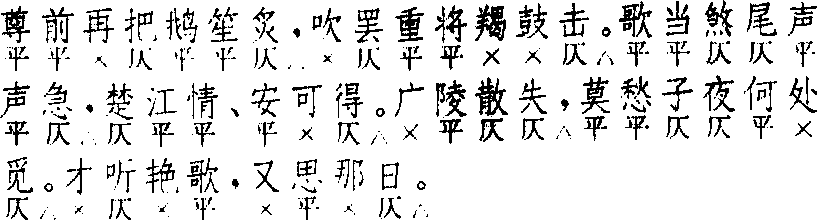 尊前再把鹅笙炙,吹罢重将羯鼓击。歌当煞尾声
平平×仄平平仄△×仄平平××仄△平平仄仄平
声急,楚江情、安可得。广陵散失,莫愁子夜何处
平仄△仄平平平×仄△×平仄仄△平平仄仄平×
觅。才听艳歌,又思那日。
仄△×仄×平×平×仄△